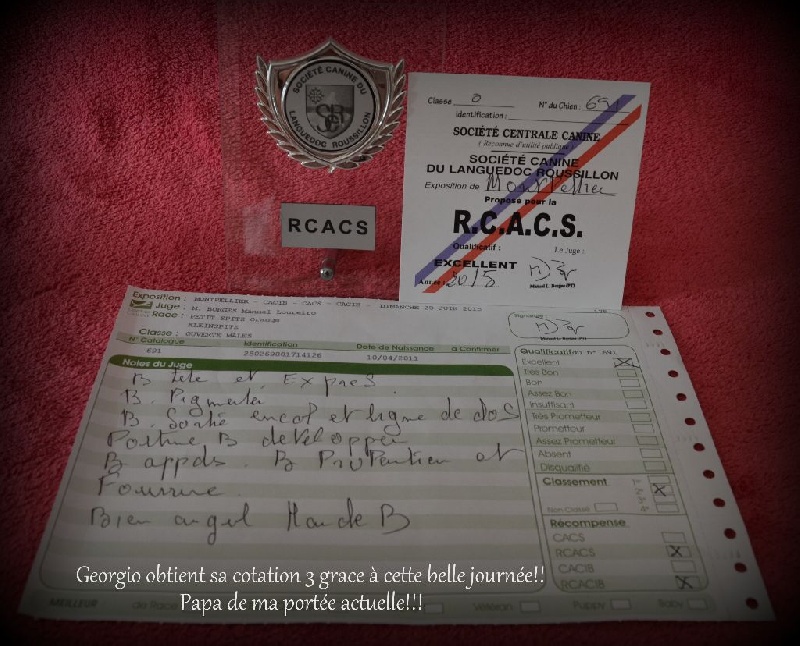 SOCIÉTÉ CANINE DU
LANGUEDOC ROUSSILLON
RCACS
Classe O N° du Chien : 621
Identification :
SOCIÉTÉ CENTRALE CANINE
( Reconnue d'utilité publique )
SOCIÉTÉ CANINE
DU LANGUEDOC ROUSSILLON
Exposition de Montpellier
Proposé pour le
R.C.A.C.S.
Qualificatif : Le Juge :
EXCELLENT
2015
Exposition : MONTPELLIER - CACIB - CACS - CACIB - DIMANCHE 28 JUIN 2015
Juge : M. BORGES Manuel Loureiro
Race : PETIT SPITZ Orange
KLEINSPITZ
Classe : OUVERTE MALES
N° Catalogue Identification Date de Naissance à Confirmer
621 10/04/2013
Notes du Juge
B tete et Expres.
B. Pigmenta
B. Sortie encol et ligne de dos
Poitrine B developpée
B appds. B Propention et
Fourrure
Bien angul Marche B
Signature
Qualification
Excellent
Très Bon
Bon
Assez Bon
Insuffisant
Très Prometteur
Prometteur
Assez Prometteur
Absent
Disqualifié
Classement
Non Classé
Récompense
CACS
RCACS
CACIB
RCACIB
MEILLEUR de Race Vétéran Puppy Baby
Georgio obtient sa cotation 3 grace à cette belle journée!!
Papa de ma portée actuelle!!!